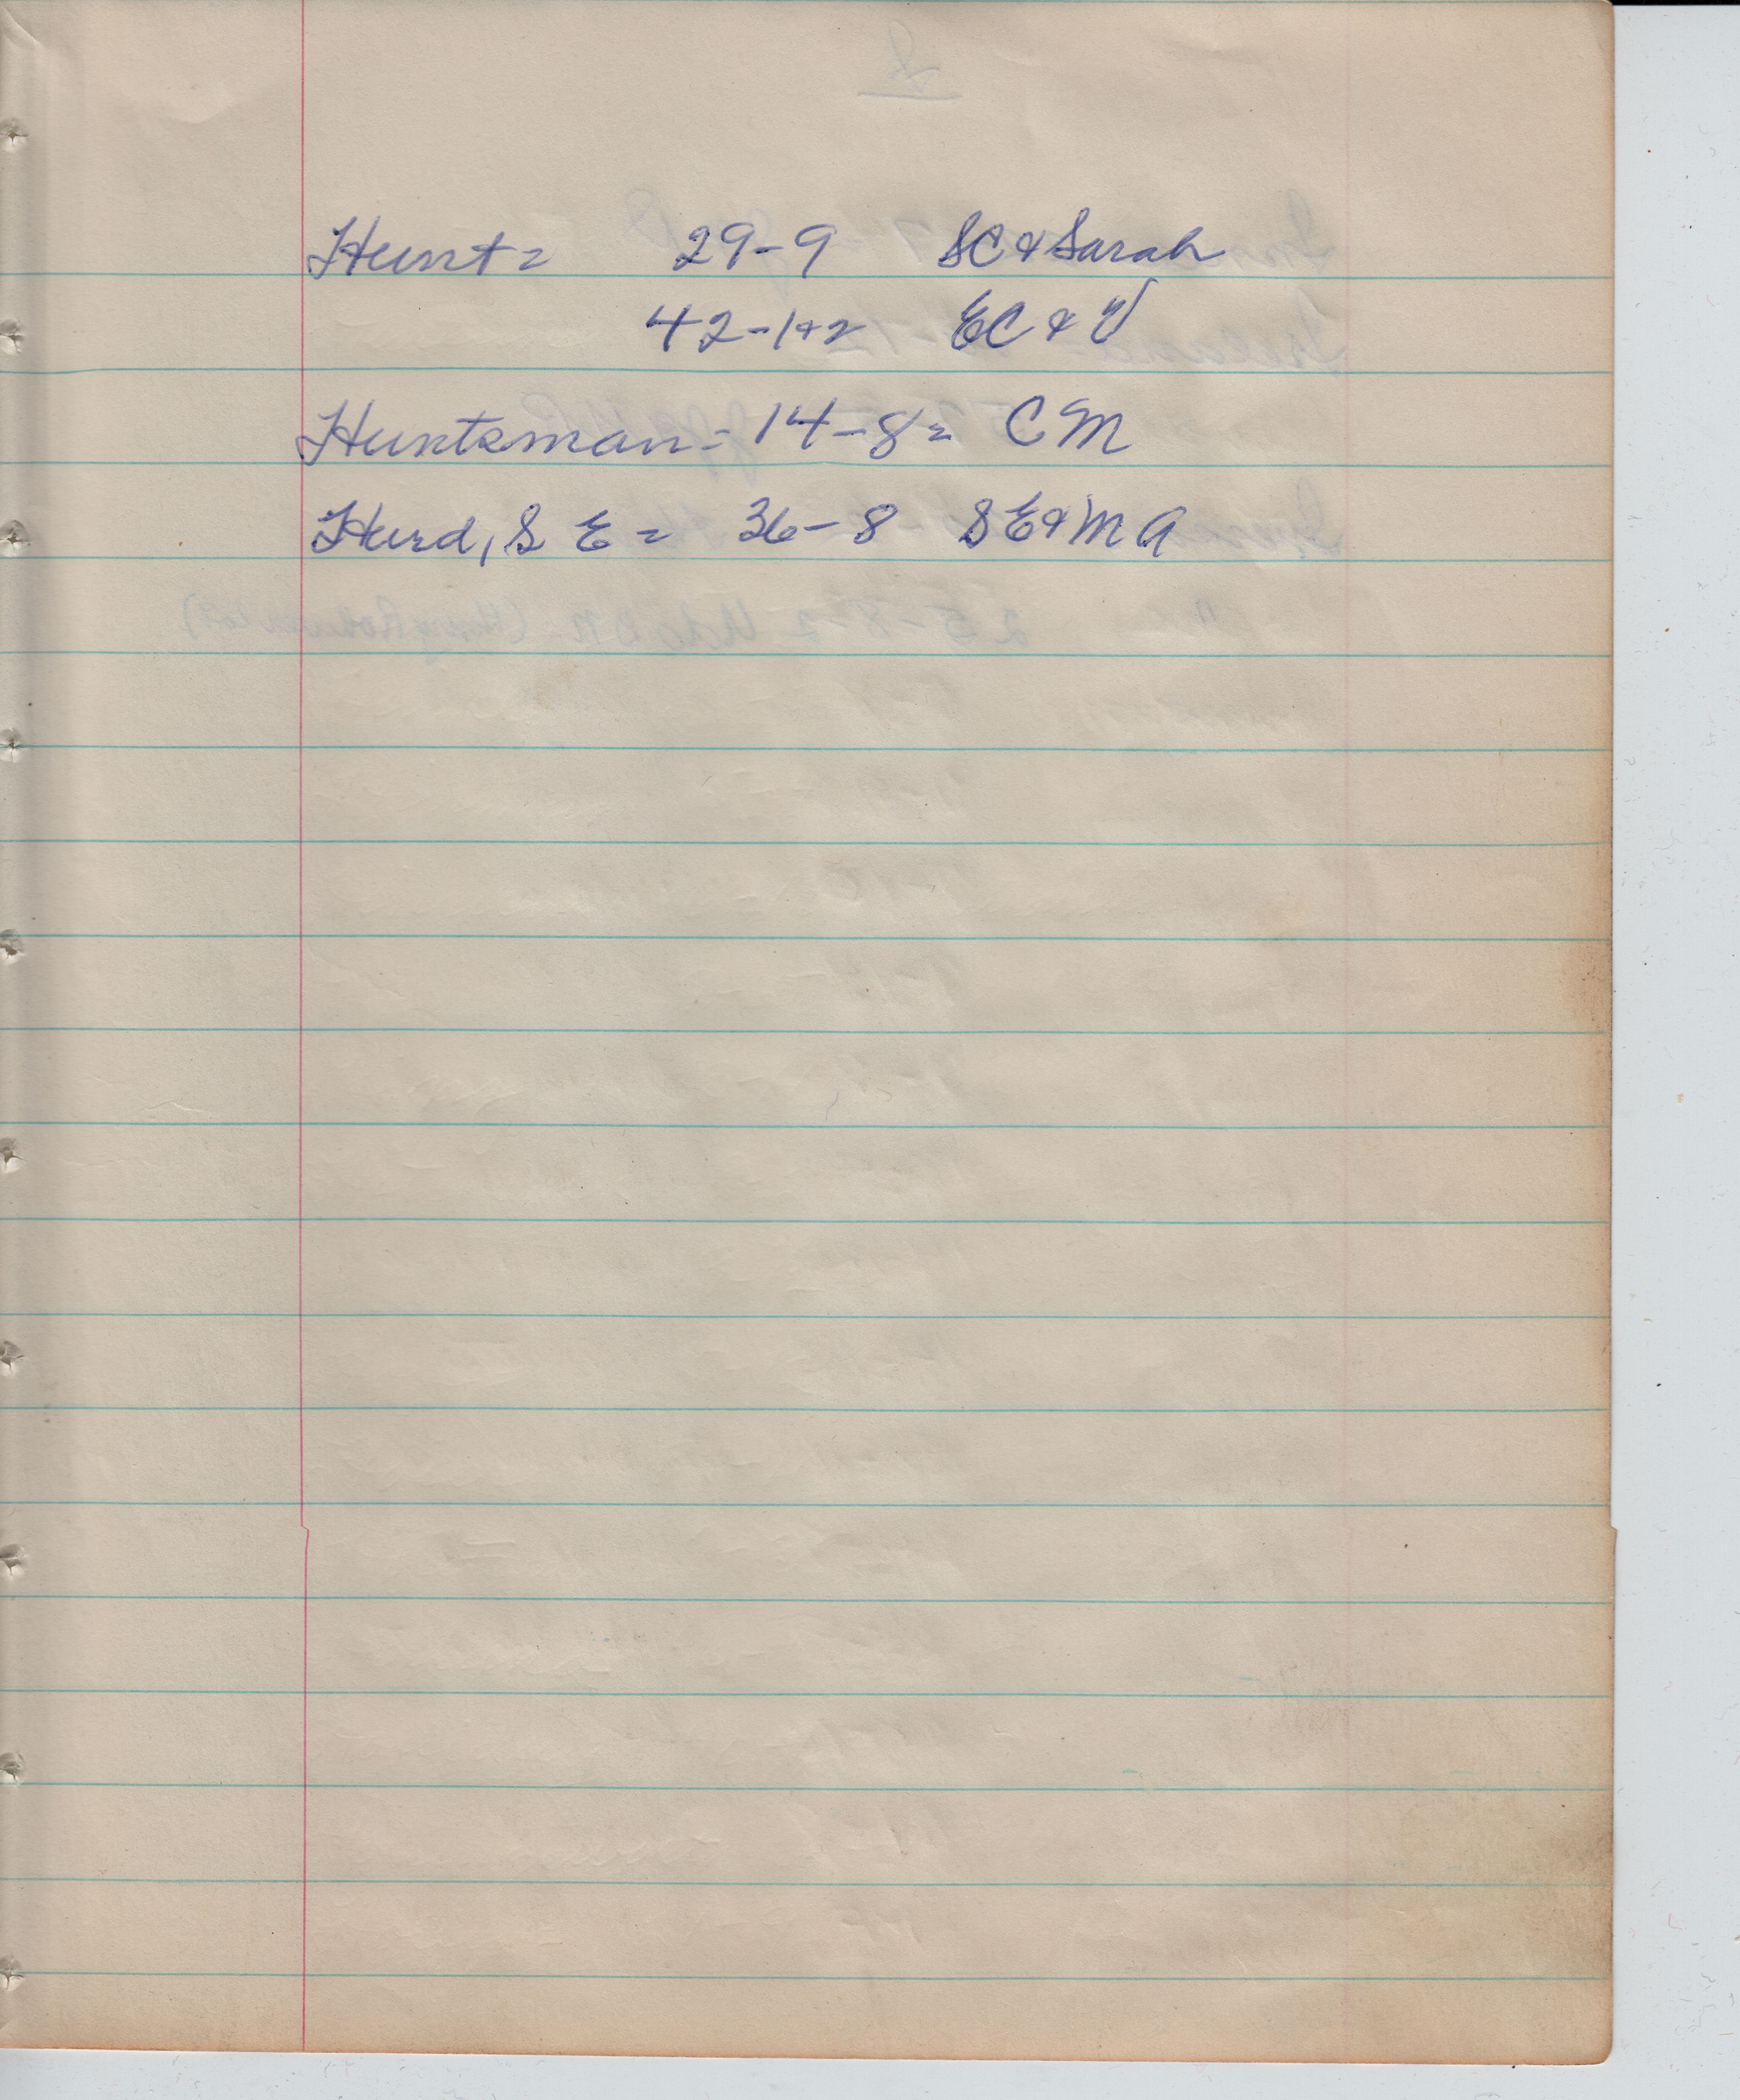 Hunt = 29-9 SC & Sarah
42-1+2 EC & V
Huntsman - 14-8 = C M
Hurd, S E = 36-8 S E & M A